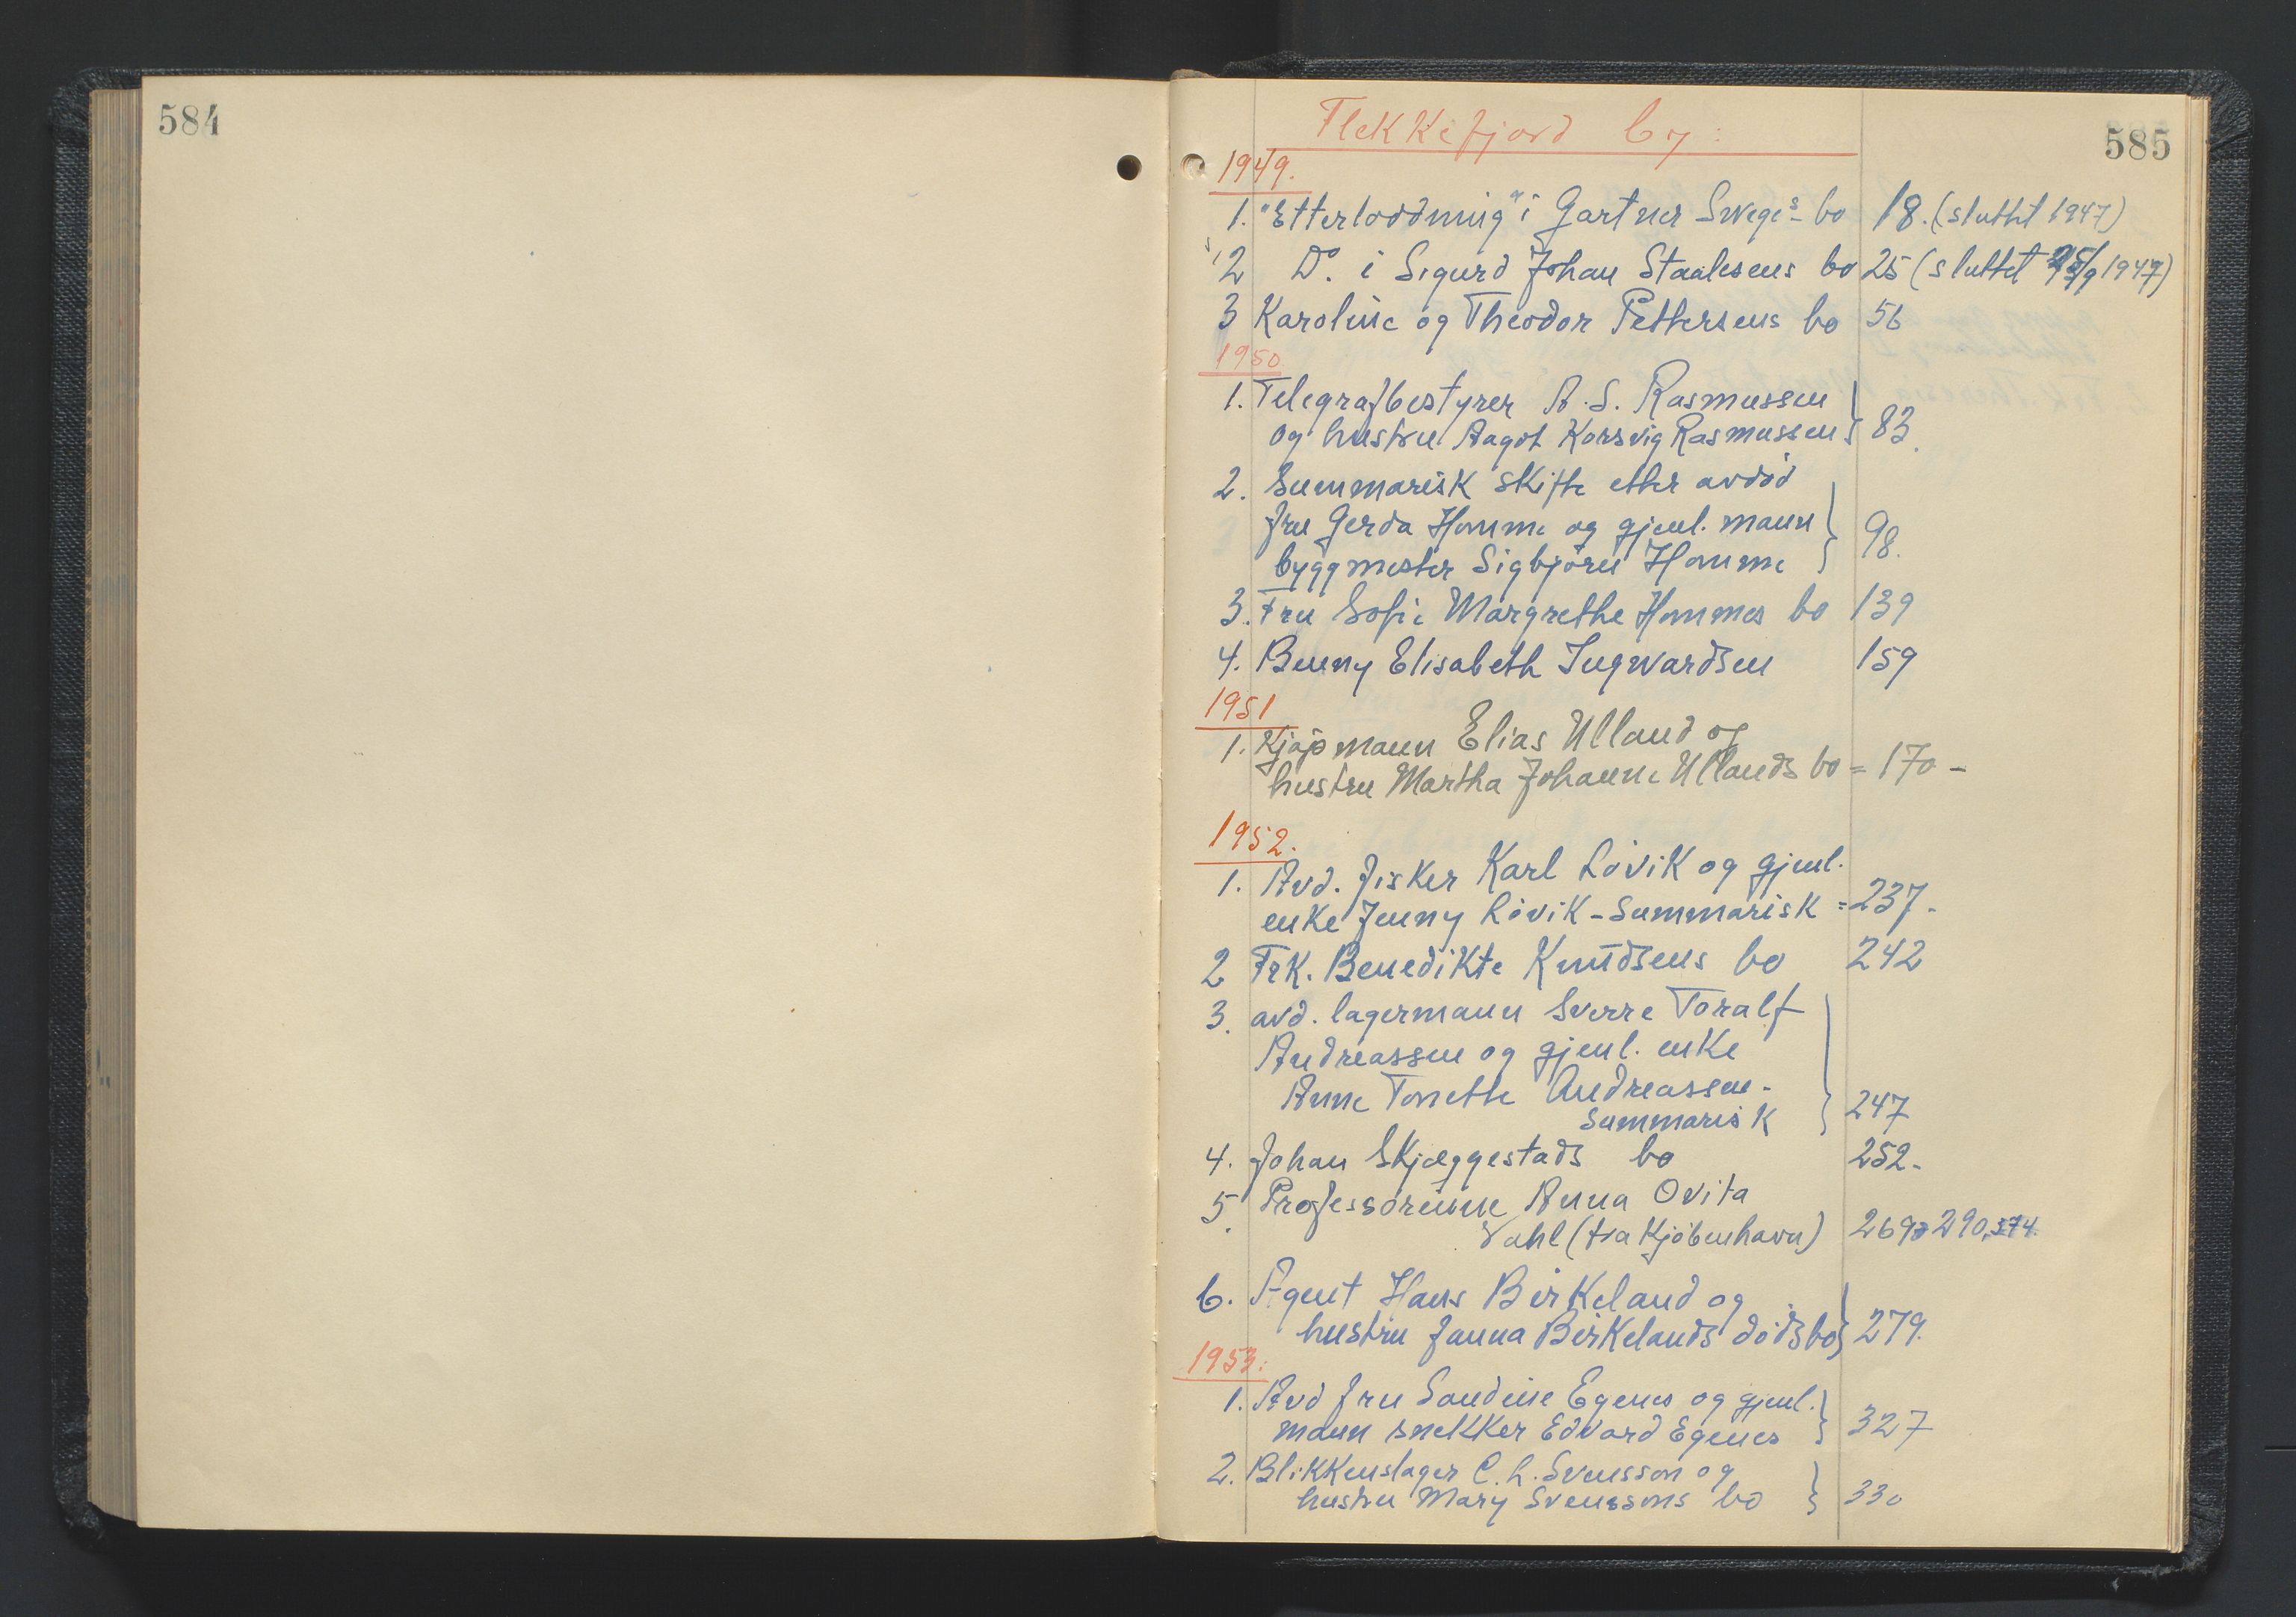 584
585
Flekkefjord by:
1949.
1. "Etterloddning" i Gartner Sweges bo 18. (sluttet 1947)
2 Do. i Sigurd Johan Staalesens bo 25 (sluttet 25/9 1947)
3 Karoline og Theodor Pettersens bo 56
1950
1. Telegrafbestyrer A. S. Rasmussen
og hustru Aagot Korsvig Rasmussen 83.
2. Summarisk skifte etter avdød
fru Gerda Homme og gjenl. mann
byggmester Sigbjørn Homme 98.
3. Fru Sofie Margrethe Hommes bo 139
4. Benny Elisabeth Ingwardsen 159
1951
1. Kjøpmann Elias Ulland og
hustru Martha Johanne Ullands bo = 170 -
1952.
1. Avd. fisker Karl Løvik og gjenl.
enke Jenny Løvik - Summarisk = 237.-
2 Frk. Benedikte Knudsens bo 242
3. avd. lagermann Sverre Toralf
Andreassen og gjenl. enke
Anne Tonette Andreassen -
Summarisk 247
4. Johan Skjæggestads bo 252.-
5. Professorinne Anna Ovita
Vahl (fra Kjøbenhavn) 269, 290, 374.
6. Agent Hans Birkeland og
hustru Janna Birkelands dødsbo 279.
1953:
1. Avd fru Sandine Egenes og gjenl.
mann snekker Edvard Egenes 327
2. Blikkenslager C. L. Svensson og
hustru Mary Svenssons bo 330